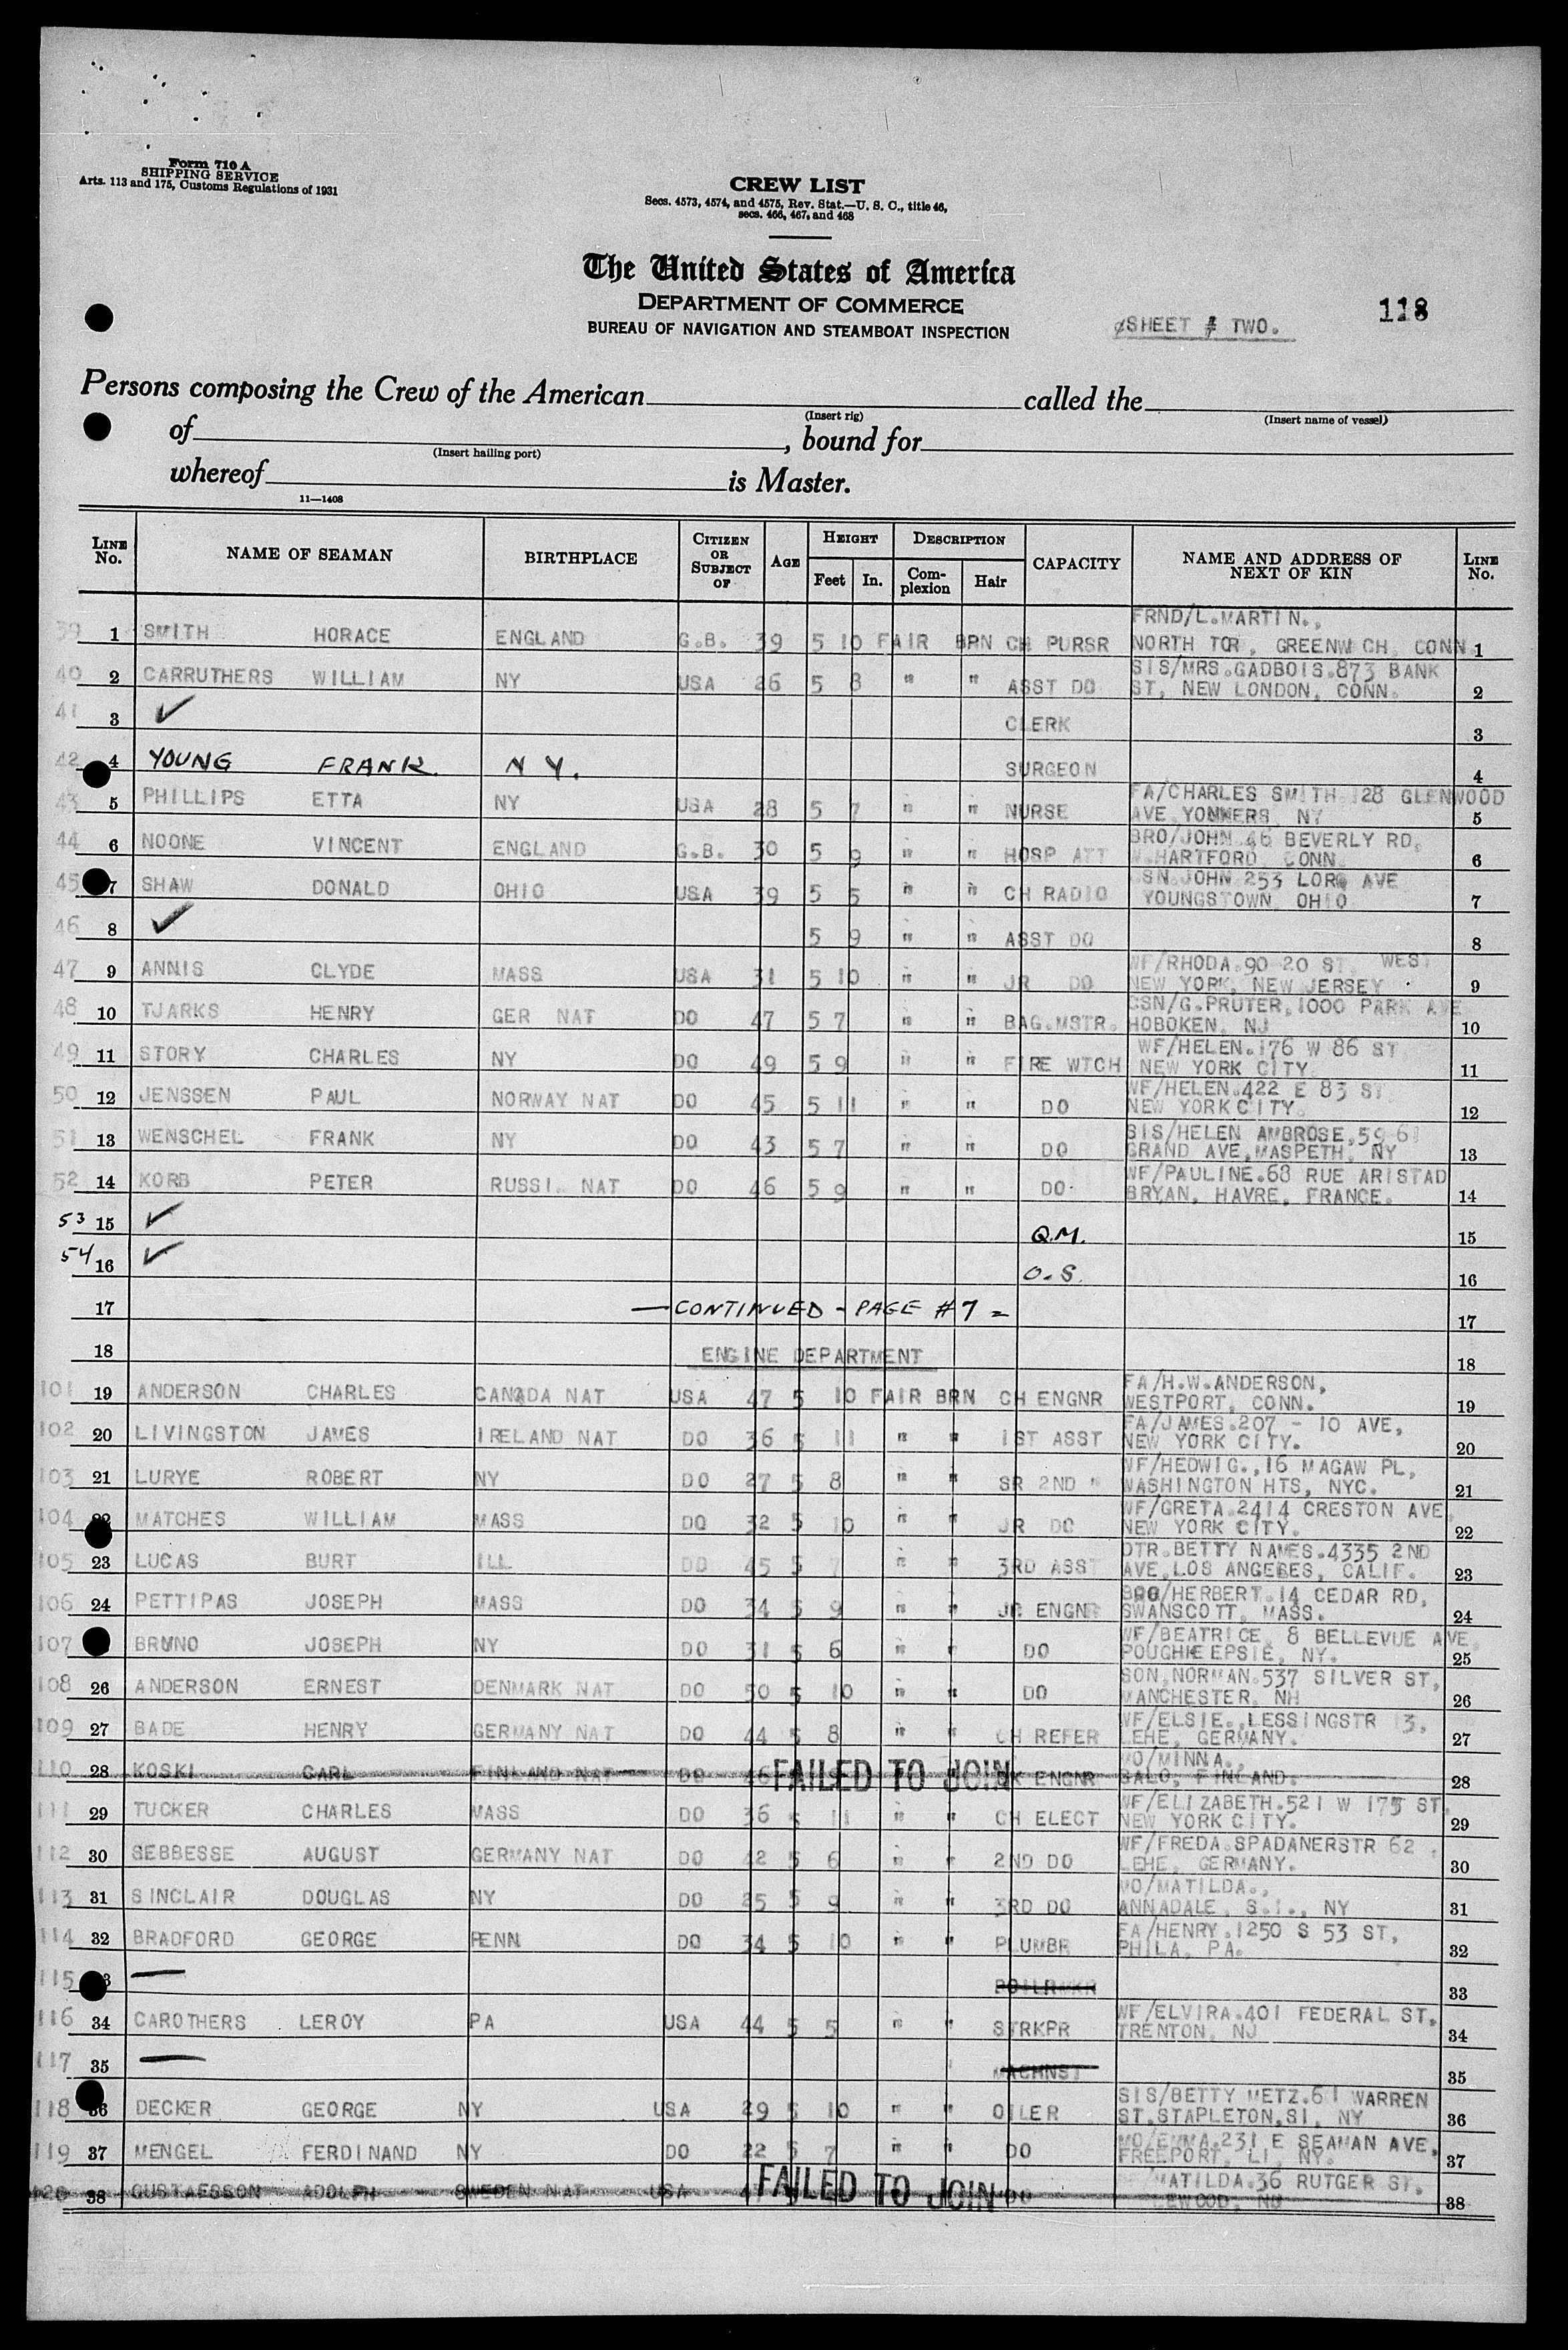 Form 710 A
SHIPPING SERVICE
Arts. 113 and 175, Customs Regulations of 1931
CREW LIST
Secs. 4573, 4574, and 4575, Rev. Stat.—U. S. C., title 46,
secs. 466, 467, and 468
The United States of America
DEPARTMENT OF COMMERCE
BUREAU OF NAVIGATION AND STEAMBOAT INSPECTION
SHEET # TWO.
118
Persons composing the Crew of the American called the
(Insert rig) (Insert name of vessel)
of , bound for
(Insert hailing port)
whereof is Master.
11—1408
LINE No. NAME OF SEAMAN BIRTHPLACE CITIZEN OR SUBJECT OF AGE HEIGHT Feet In. DESCRIPTION Complexion Hair CAPACITY NAME AND ADDRESS OF NEXT OF KIN LINE No.
FRND/L.MARTIN.,
39 1 SMITH HORACE ENGLAND G.B. 39 5 10 FAIR BRN CH PURSR NORTH TOR, GREENWICH, CONN 1
SIS/MRS.GADBOIS.873 BANK
40 2 CARRUTHERS WILLIAM NY USA 26 5 8 " " ASST DO ST, NEW LONDON, CONN. 2
41 3 ✓ CLERK 3
42 4 YOUNG FRANK. N Y. SURGEON 4
FA/CHARLES SMITH 128 GLENWOOD
43 5 PHILLIPS ETTA NY USA 28 5 7 " " NURSE AVE YONKERS NY 5
BRO/JOHN.46 BEVERLY RD,
44 6 NOONE VINCENT ENGLAND G.B. 30 5 9 " " HOSP ATT W.HARTFORD CONN. 6
JOHN 253 LORA AVE
45 7 SHAW DONALD OHIO USA 39 5 5 " " CH RADIO YOUNGSTOWN OHIO 7
46 8 ✓ 5 9 " " ASST DO 8
WF/RHODA.90 20 ST, WEST
47 9 ANNIS CLYDE MASS USA 31 5 10 " " JR DO NEW YORK, NEW JERSEY 9
CSN/G.PRUTER,1000 PARK AVE
48 10 TJARKS HENRY GER NAT DO 47 5 7 " " BAG.MSTR. HOBOKEN, NJ 10
WF/HELEN.176 W 86 ST
49 11 STORY CHARLES NY DO 49 5 9 " " FIRE WTCH NEW YORK CITY. 11
WF/HELEN.422 E 83 ST
50 12 JENSSEN PAUL NORWAY NAT DO 45 5 11 " " DO NEW YORK CITY. 12
SIS/HELEN AMBROSE,59 61
51 13 WENSCHEL FRANK NY DO 43 5 7 " " DO GRAND AVE,MASPETH, NY 13
WF/PAULINE.68 RUE ARISTAD
52 14 KORB PETER RUSSI. NAT DO 46 5 9 " " DO BRYAN, HAVRE, FRANCE. 14
53 15 ✓ Q.M. 15
54 16 ✓ O.S. 16
17 — CONTINUED - PAGE #7 = 17
18 ENGINE DEPARTMENT 18
FA/H.W.ANDERSON,
101 19 ANDERSON CHARLES CANADA NAT USA 47 5 10 FAIR BRN CH ENGNR WESTPORT, CONN. 19
FA/JAMES.207 - 10 AVE,
102 20 LIVINGSTON JAMES IRELAND NAT DO 36 5 11 " " 1ST ASST NEW YORK CITY. 20
WF/HEDWIG.,16 MAGAW PL,
103 21 LURYE ROBERT NY DO 27 5 8 " " SR 2ND " WASHINGTON HTS, NYC. 21
WF/GRETA.2414 CRESTON AVE,
104 22 MATCHES WILLIAM MASS DO 32 5 10 " " JR DO NEW YORK CITY. 22
DTR.BETTY NAMES.4335 2ND
105 23 LUCAS BURT ILL DO 45 5 7 " " 3RD ASST AVE,LOS ANGELES, CALIF. 23
BRO/HERBERT.14 CEDAR RD,
106 24 PETTIPAS JOSEPH MASS DO 34 5 9 " " JR ENGNR SWANSCOTT, MASS. 24
WF/BEATRICE, 8 BELLEVUE AVE,
107 BRUNO JOSEPH NY DO 31 5 6 " " DO POUGHKEEPSIE, NY. 25
SON,NORMAN.537 SILVER ST,
108 26 ANDERSON ERNEST DENMARK NAT DO 50 5 10 " " DO MANCHESTER, NH 26
WF/ELSIE.,LESSINGSTR 13,
109 27 BADE HENRY GERMANY NAT DO 44 5 8 " " CH REFER LEHE, GERMANY. 27
MO/MINNA.,
110 28 KOSKI CARL FINLAND NAT DO FAILED TO JOIN ENGNR SALO, FINLAND. 28
WF/ELIZABETH.521 W 175 ST,
111 29 TUCKER CHARLES MASS DO 36 5 11 " " CH ELECT NEW YORK CITY. 29
WF/FREDA.SPADANERSTR 62,
112 30 SEBBESSE AUGUST GERMANY NAT DO 42 5 6 " " 2ND DO LEHE, GERMANY. 30
MO/MATILDA.,
113 31 SINCLAIR DOUGLAS NY DO 25 5 9 " " 3RD DO ANNADALE, S.I., NY 31
FA/HENRY.1250 S 53 ST,
114 32 BRADFORD GEORGE PENN DO 34 5 10 " " PLUMBR PHILA, PA. 32
115 — 33
WF/ELVIRA.401 FEDERAL ST,
116 34 CAROTHERS LEROY PA USA 44 5 5 " " STRKPR TRENTON, NJ 34
117 35 — MACHNST 35
SIS/BETTY METZ.61 WARREN
118 36 DECKER GEORGE NY USA 29 5 10 " " OILER ST.STAPLETON,SI, NY 36
MO/EMMA.231 E SEAMAN AVE,
119 37 MENGEL FERDINAND NY DO 22 5 7 " " DO FREEPORT, LI, NY. 37
MATILDA.36 RUTGER ST,
120 38 GUSTAFSSON ADOLPH SWEDEN NAT USA FAILED TO JOIN DO NJ 38